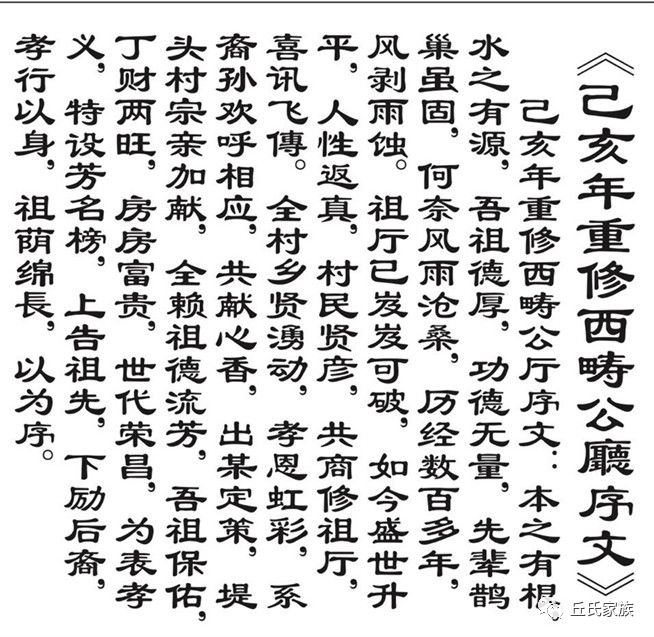 《己亥年重修西畴公廳序文》
己亥年重修西畴公厅序文：本之有根，
水之有源，吾祖德厚，功德无量，先辈鹊
巢虽固，何奈风雨沧桑，历经数百多年，
风剥雨蚀。祖厅已岌岌可破，如今盛世升
平，人性返真，村民贤彦，共商修祖厅，
喜讯飞傳。全村乡贤湧动，孝恩虹彩，系
裔孙欢呼相应，共献心香，出某定策，堤
头村宗亲加献，全赖祖德流芳，吾祖保佑，
丁财两旺，房房富贵，世代荣昌，为表孝
义，特设芳名榜，上告祖先，下励后裔，
孝行以身，祖荫绵長，以为序。
丘氏家族